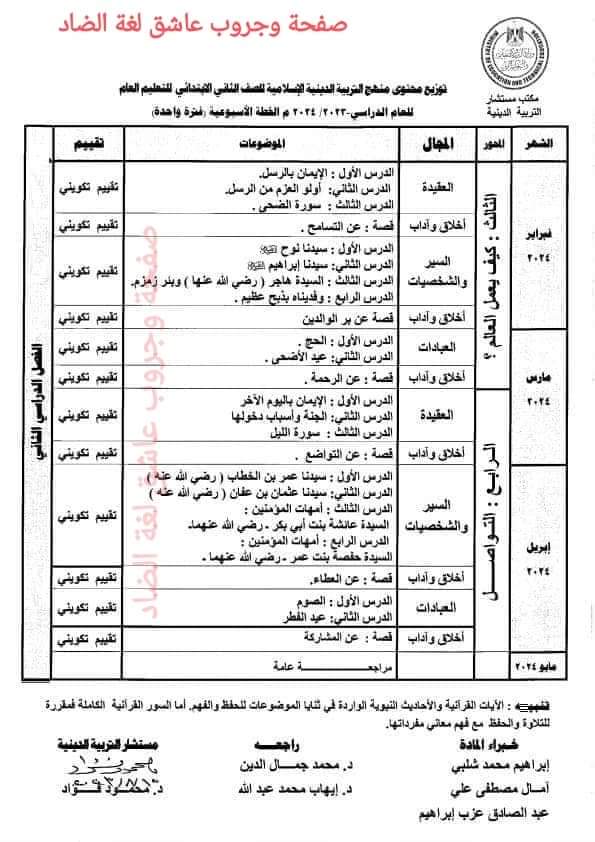 صفحة وجروب عاشق لغة الضاد
مكتب مستشار
التربية الدينية
توزيع محتوى منهج التربية الدينية الإسلامية للصف الثاني الابتدائي للتعليم العام
للعام الدراسي-٢٠٢٣/ ٢٠٢٤ م الخطة الأسبوعية (فترة واحدة)
الشهر المحور المجال الموضوعات تقييم
فبراير
٢٠٢٤
الثالث : كيف يعمل العالم ؟
العقيدة
الدرس الأول : الإيمان بالرسل.
الدرس الثاني: أولو العزم من الرسل.
الدرس الثالث : سورة الضحى .
تقييم تكويني
أخلاق وآداب قصة : عن التسامح . تقييم تكويني
السير
والشخصيات
الدرس الأول : سيدنا نوح ﷺ
الدرس الثاني: سيدنا إبراهيم ﷺ
الدرس الثالث : السيدة هاجر ( رضي الله عنها ) وبئر زمزم.
الدرس الرابع : وفديناه بذبح عظيم .
تقييم تكويني
أخلاق وآداب قصة عن بر الوالدين تقييم تكويني
مارس
٢٠٢٤
العبادات
الدرس الأول : الحج .
الدرس الثاني: عيد الأضحى .
تقييم تكويني
أخلاق وآداب قصة : عن الرحمة . تقييم تكويني
الرابع : التواصل
العقيدة
الدرس الأول : الإيمان باليوم الآخر
الدرس الثاني: الجنة وأسباب دخولها
الدرس الثالث : سورة الليل
تقييم تكويني
أخلاق وآداب قصة : عن التواضع . تقييم تكويني
إبريل
٢٠٢٤
السير
والشخصيات
الدرس الأول : سيدنا عمر بن الخطاب ( رضي الله عنه )
الدرس الثاني: سيدنا عثمان بن عفان ( رضي الله عنه )
الدرس الثالث : أمهات المؤمنين :
السيدة عائشة بنت أبي بكر - رضي الله عنهما-
الدرس الرابع : أمهات المؤمنين :
السيدة حفصة بنت عمر - رضي الله عنهما -
تقييم تكويني
أخلاق وآداب قصة : عن العطاء. تقييم تكويني
العبادات
الدرس الأول : الصوم
الدرس الثاني: عيد الفطر
تقييم تكويني
أخلاق وآداب قصة : عن المشاركة تقييم تكويني
مايو ٢٠٢٤ مراجعة عامة
الفصل الدراسي الثاني
صفحة وجروب عاشق لغة الضاد
تنبيه : الآيات القرآنية والأحاديث النبوية الواردة في ثنايا الموضوعات للحفظ والفهم. أما السور القرآنية الكاملة فمقررة
للتلاوة والحفظ مع فهم معاني مفرداتها.
خبراء المادة راجعه مستشار التربية الدينية
إبراهيم محمد شلبي د. محمد جمال الدين
آمال مصطفى علي د. إيهاب محمد عبد الله د. محمود فؤاد
عبد الصادق عزب إبراهيم